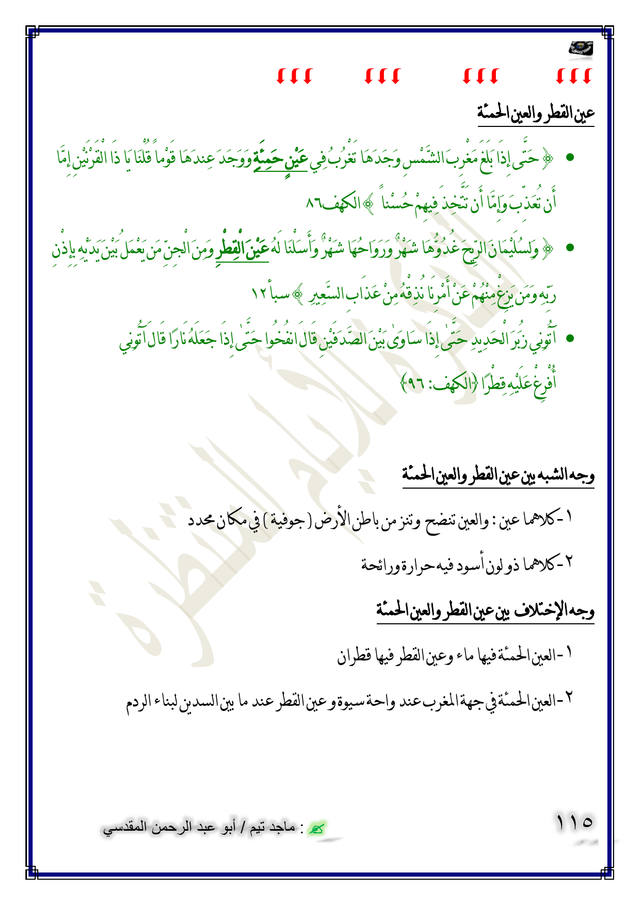 عين القطر والعين الحمئة
• ﴿ حَتَّى إِذَا بَلَغَ مَغْرِبَ الشَّمْسِ وَجَدَهَا تَغْرُبُ فِي عَيْنٍ حَمِئَةٍ وَوَجَدَ عِندَهَا قَوْماً قُلْنَا يَا ذَا الْقَرْنَيْنِ إِمَّا
أَن تُعَذِّبَ وَإِمَّا أَن تَتَّخِذَ فِيهِمْ حُسْناً ﴾ الكهف٨٦
• ﴿ وَلِسُلَيْمَانَ الرِّيحَ غُدُوُّهَا شَهْرٌ وَرَوَاحُهَا شَهْرٌ وَأَسَلْنَا لَهُ عَيْنَ الْقِطْرِ وَمِنَ الْجِنِّ مَن يَعْمَلُ بَيْنَ يَدَيْهِ بِإِذْنِ
رَبِّهِ وَمَن يَزِغْ مِنْهُمْ عَنْ أَمْرِنَا نُذِقْهُ مِنْ عَذَابِ السَّعِيرِ ﴾ سبأ١٢
• آتُونِي زُبَرَ الْحَدِيدِ حَتَّىٰ إِذَا سَاوَىٰ بَيْنَ الصَّدَفَيْنِ قَالَ انفُخُوا حَتَّىٰ إِذَا جَعَلَهُ نَارًا قَالَ آتُونِي
أُفْرِغْ عَلَيْهِ قِطْرًا ﴿الكهف: ٩٦﴾
وجه الشبه بين عين القطر والعين الحمئة
١-كلاهما عين : والعين تنضح وتنز من باطن الأرض ( جوفية ) في مكان محدد
٢-كلاهما ذو لون أسود فيه حرارة ورائحة
وجه الإختلاف بين عين القطر والعين الحمئة
١-العين الحمئة فيها ماء وعين القطر فيها قطران
٢-العين الحمئة في جهة المغرب عند واحة سيوة و عين القطر عند ما بين السدين لبناء الردم
١١٥
: ماجد تيم / أبو عبد الرحمن المقدسي